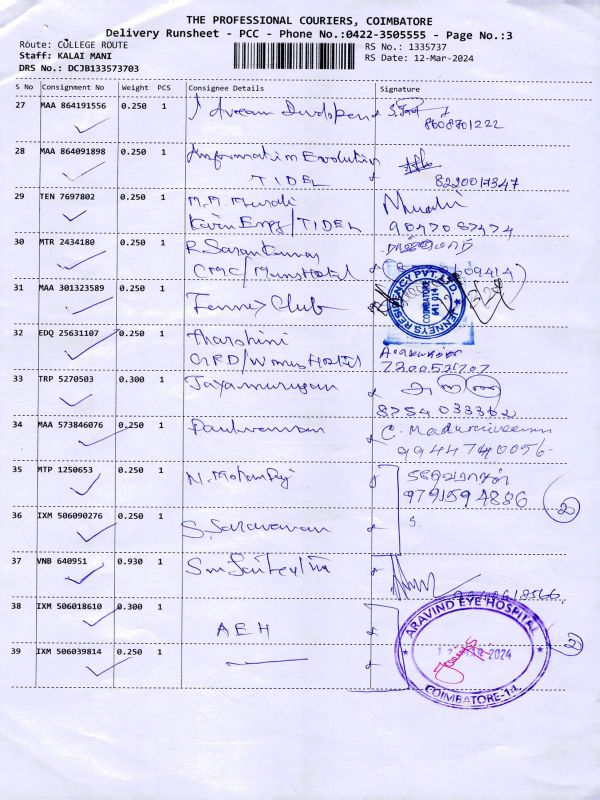 THE PROFESSIONAL COURIERS, COIMBATORE
Delivery Runsheet - PCC - Phone No.:0422-3505555 - Page No.:3
Route: COLLEGE ROUTE
Staff: KALAI MANI
DRS No.: DCJB133573703
RS No.: 1335737
RS Date: 12-Mar-2024
S No Consignment No Weight PCS Consignee Details Signature
27 MAA 864191556 0.250 1
8608701222
28 MAA 864091898 0.250 1 Information Evolution
TIDEL 8220017347
29 TEN 7697802 0.250 1 M.M. Murali Murali
/TIDEL 9047087474
30 MTR 2434180 0.250 1 R. Saran Kumar
CMC/Mens Hostel
31 MAA 301323589 0.250 1 Jenneys Club
JENNEYS RESIDENCY PVT. LTD.
COIMBATORE
641 014
32 EDQ 25631107 0.250 1 Tharshini
GRD/Womens Hostel
33 TRP 5270503 0.300 1 Jayamurugan
8754033362
34 MAA 573846076 0.250 1 C. Maduraiveeran
9944740056
35 MTP 1250653 0.250 1 N. Mohan Raj
9791594886
2
36 IXM 506090276 0.250 1 S. Saravanan
37 VNB 640951 0.930 1
38 IXM 506018610 0.300 1 AEH
2
39 IXM 506039814 0.250 1
ARAVIND EYE HOSPITAL
2024
COIMBATORE-14.